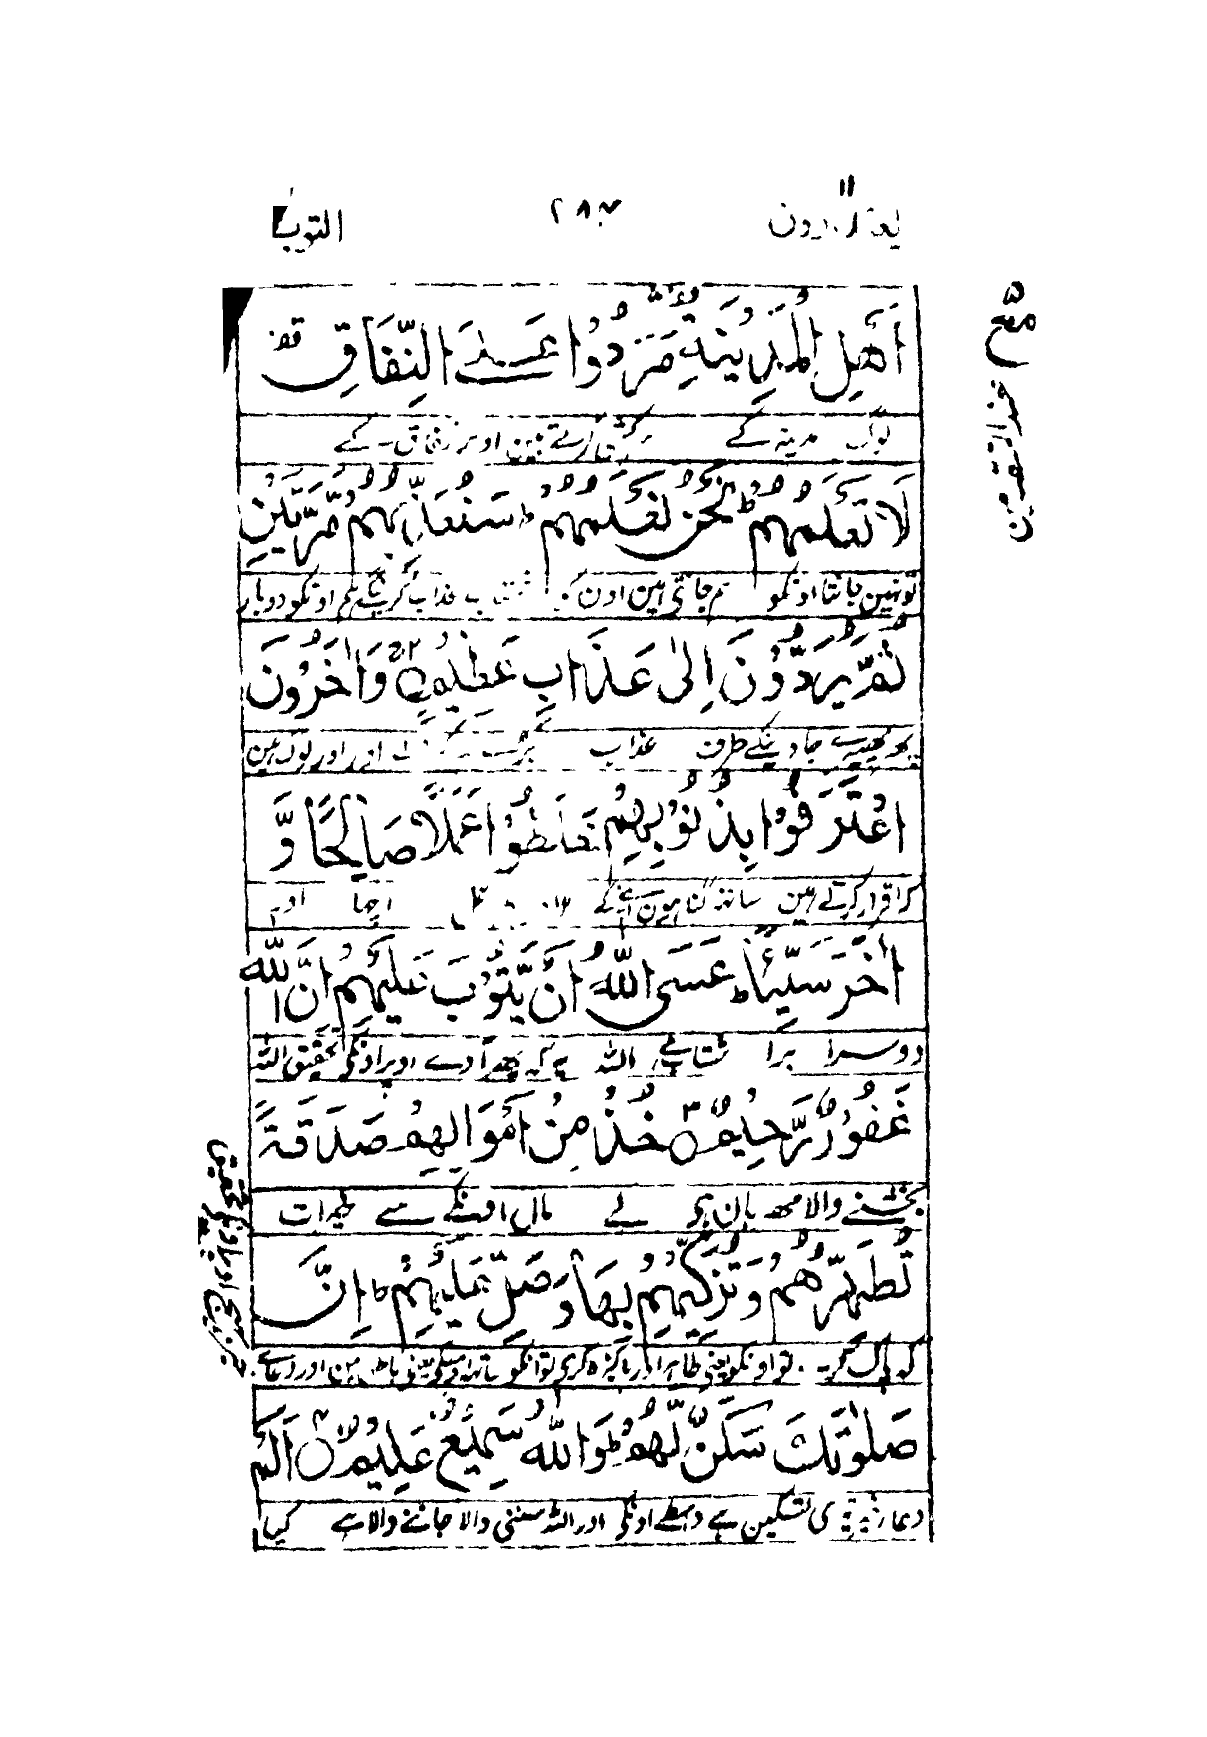 یعتذرون ۱۱
۲۸۳
التوبة
اَهْلِ الْمَدِیْنَةِ مَرَدُوْا عَلَی النِّفَاقِ قف
لوگ مدینہ کے اوپر نفاق کے
لَا تَعْلَمُهُمْ ط نَحْنُ نَعْلَمُهُمْ ط سَنُعَذِّبُهُمْ مَّرَّتَیْنِ
تو نہین جانتا اونکو ہم جانتے ہین اون کو عذاب کرینگے ہم اونکو دوبار
ثُمَّ یُرَدُّوْنَ اِلٰی عَذَابٍ عَظِیْمٍ ۝ وَاٰخَرُوْنَ
پھر پھیرے جاوینگے طرف عذاب اور اور لوگ ہین
اعْتَرَفُوْا بِذُنُوْبِهِمْ خَلَطُوْا عَمَلًا صَالِحًا وَّ
کہ اقرار کرتے ہین ساتھ گناہون اپنے کے اچھا اور
اٰخَرَ سَیِّئًا ط عَسَی اللّٰهُ اَنْ یَّتُوْبَ عَلَیْهِمْ اِنَّ اللّٰهَ
دوسرا برا شتاب ہے اللہ یہ کہ پھر آوے اوپر اونکے تحقیق اللہ
غَفُوْرٌ رَّحِیْمٌ ۝ خُذْ مِنْ اَمْوَالِهِمْ صَدَقَةً
بخشنے والا مہربان ہے لے مال اونکے سے خیرات
تُطَهِّرُهُمْ وَتُزَکِّیْهِمْ بِهَا وَصَلِّ عَلَیْهِمْ ط اِنَّ
کہ پاک کرے تو اونکو یعنی ظاہر اور پاکیزہ کرے تو اونکو ساتھ اوسکے یعنی باطن مین اور دعا
صَلٰوتَكَ سَکَنٌ لَّهُمْ ط وَاللّٰهُ سَمِیْعٌ عَلِیْمٌ ۝ اَلَمْ
دعا تیری تسکین ہے واسطے اونکے اور اللہ سننے والا جاننے والا ہے کیا
مع
عند المتقدمین